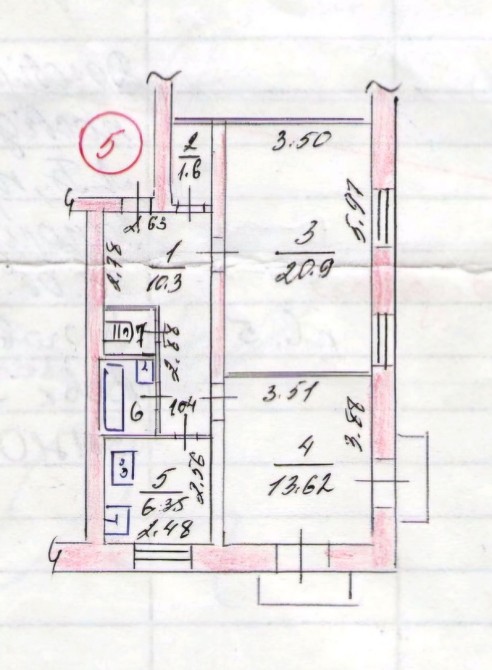 5
2
1.6
3.50
5.97
2.63
2.78
1
10.3
3
20.9
7
2.88
6
104
3.51
3.88
4
13.62
5
6.35
2.56
2.48